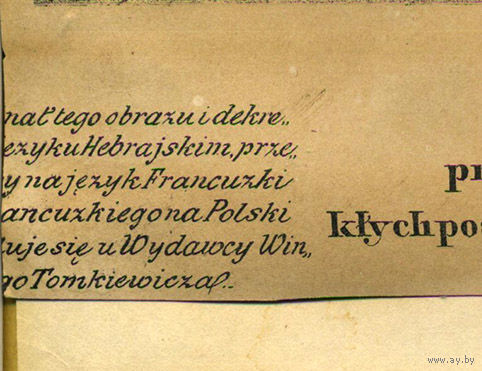 nał tego obrazu i dekre„
ęzyku Hebrajskim, prze„
y na język Francuzki
ancuzkiego na Polski
uje się u Wydawcy Win„
go Tomkiewicza
pr
kłych pos
www.ay.by